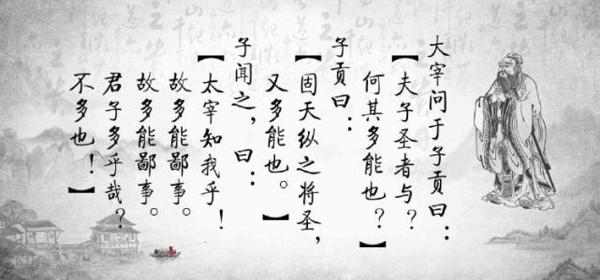 大宰问于子贡曰：
【夫子圣者与？
何其多能也？】
子贡曰：
【固天纵之将圣，
又多能也。】
子闻之，曰：
【太宰知我乎！
故多能鄙事。
故多能鄙事。
君子多乎哉？
不多也！】